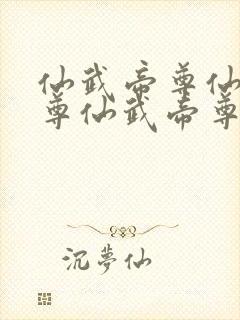 仙武帝尊仙
尊仙武帝尊
沉夢仙